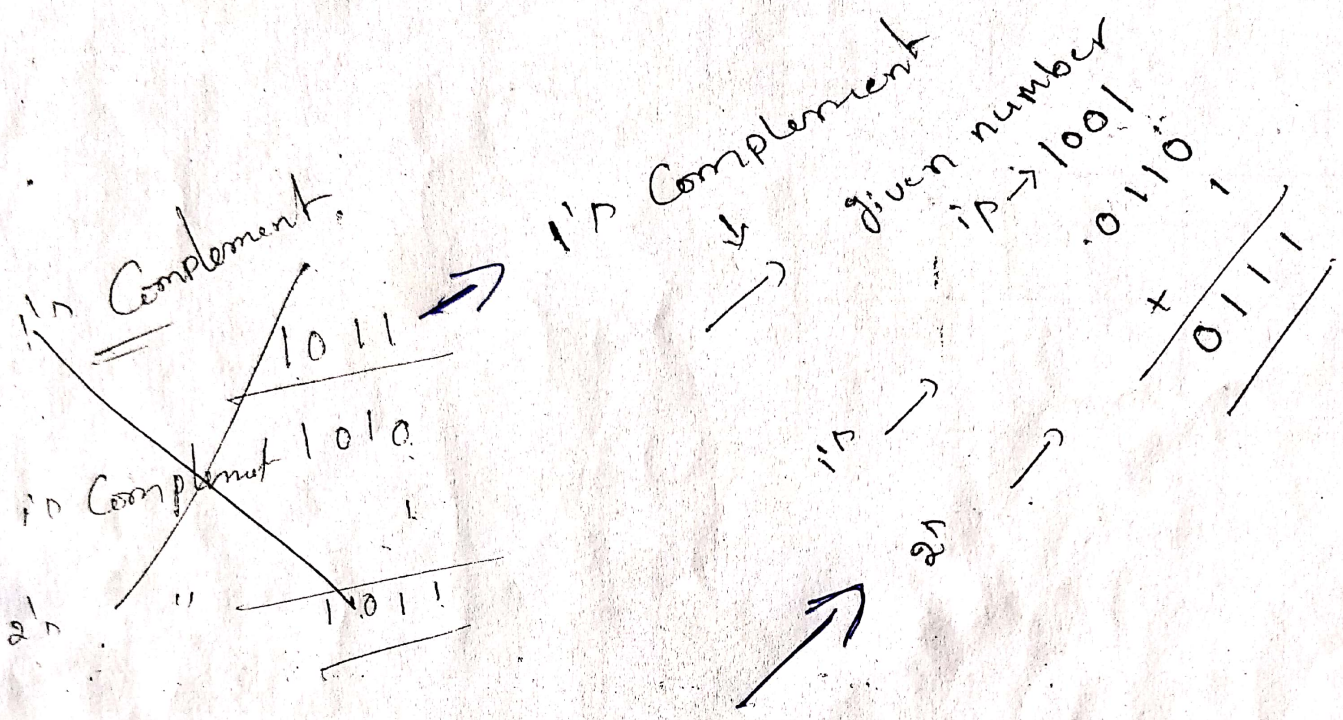 1's Complement.
1011
1's Complemut 1010
1
2's " 1011
1's Complement
given number
ip → 1001
0110
+ 1
0111
1's →
2's →